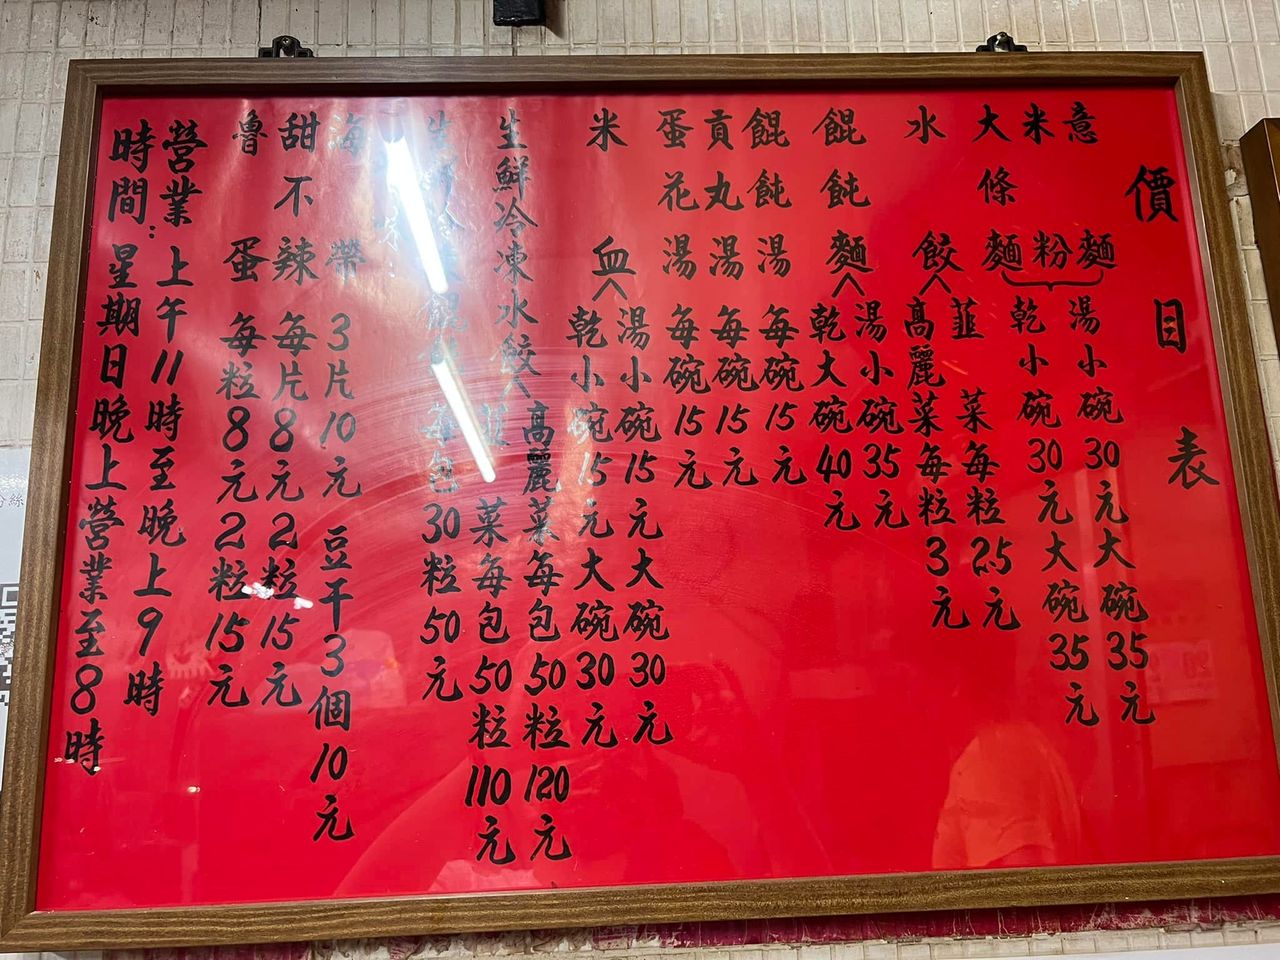 價目表
意麵
米粉
大條麵
湯小碗30元大碗35元
乾小碗30元大碗35元
水餃
韮菜每粒2.5元
高麗菜每粒3元
餛飩麵
湯小碗35元
乾大碗40元
餛飩湯每碗15元
貢丸湯每碗15元
蛋花湯每碗15元
米血
湯小碗15元大碗30元
乾小碗15元大碗30元
生鮮冷凍水餃
高麗菜每包50粒120元
韮菜每包50粒110元
生鮮冷凍餛飩每包30粒50元
海帶3片10元 豆干3個10元
甜不辣每片8元2粒15元
魯蛋每粒8元2粒15元
營業時間:
上午11時至晚上9時
星期日晚上營業至8時